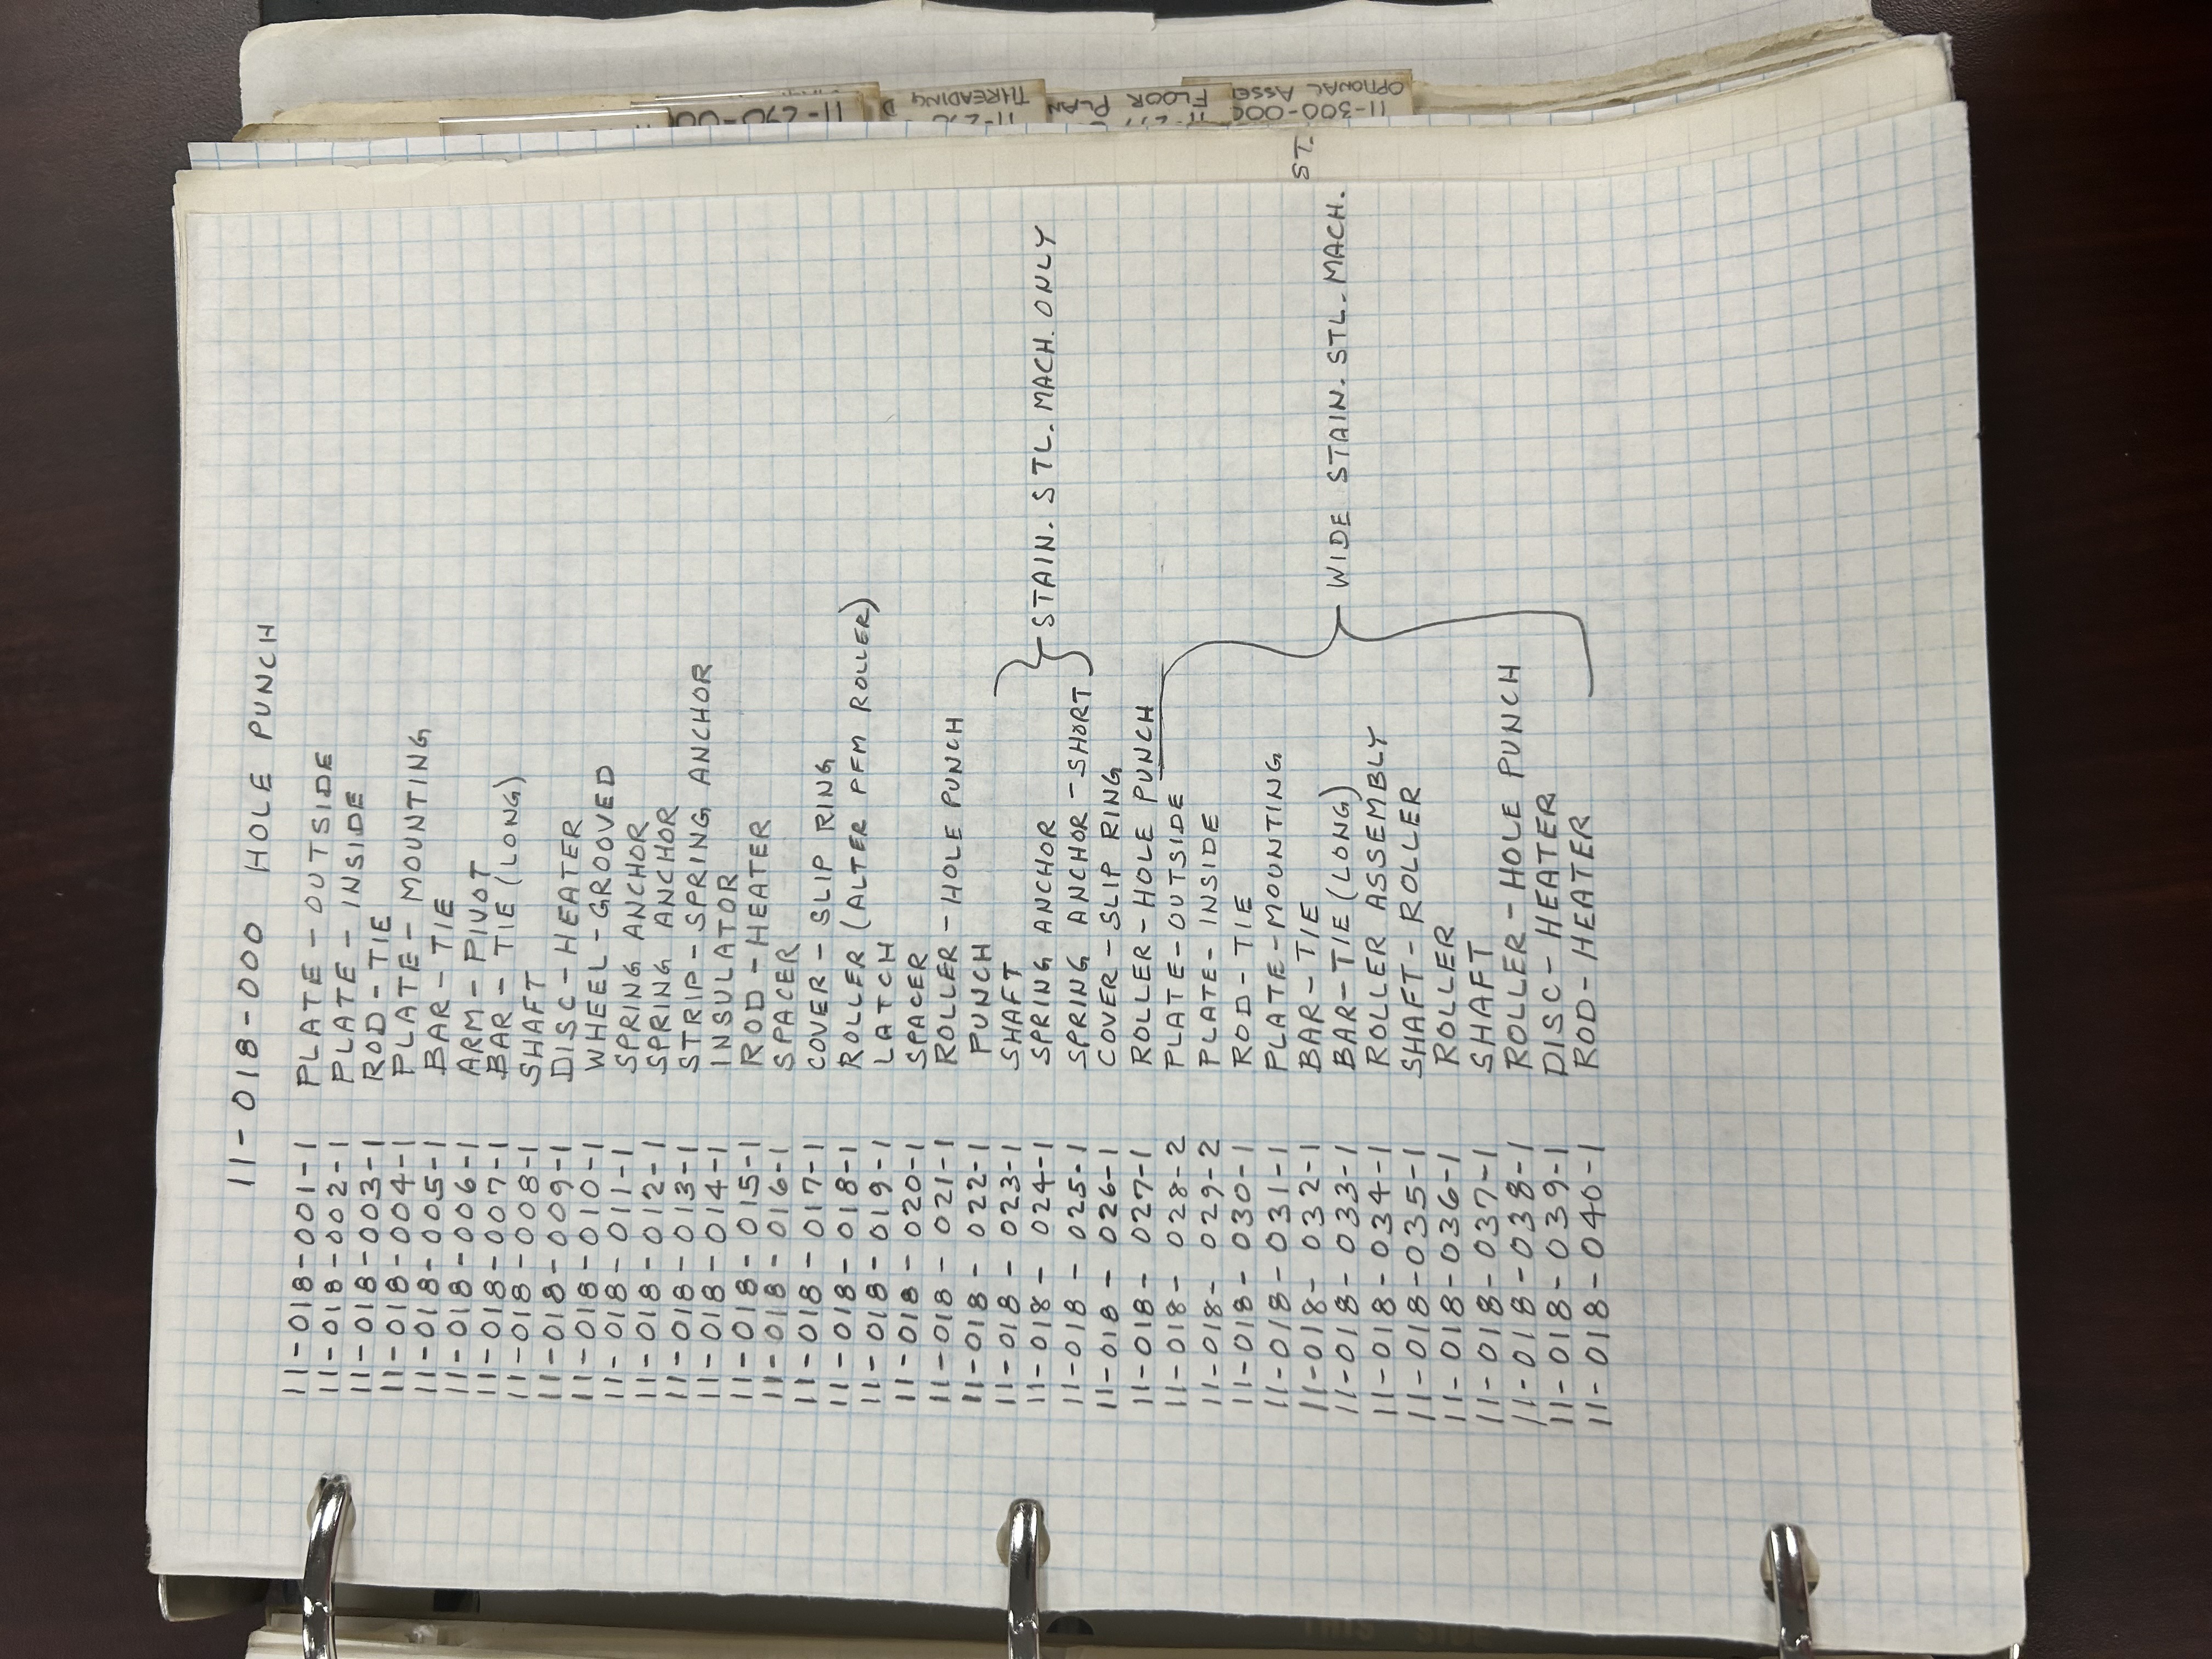 11-018-000 HOLE PUNCH
11-018-001-1 PLATE - OUTSIDE
11-018-002-1 PLATE - INSIDE
11-018-003-1 ROD - TIE
11-018-004-1 PLATE - MOUNTING
11-018-005-1 BAR - TIE
11-018-006-1 ARM - PIVOT
11-018-007-1 BAR - TIE (LONG)
11-018-008-1 SHAFT
11-018-009-1 DISC - HEATER
11-018-010-1 WHEEL - GROOVED
11-018-011-1 SPRING ANCHOR
11-018-012-1 SPRING ANCHOR
11-018-013-1 STRIP - SPRING ANCHOR
11-018-014-1 INSULATOR
11-018-015-1 ROD - HEATER
11-018-016-1 SPACER
11-018-017-1 COVER - SLIP RING
11-018-018-1 ROLLER (ALTER PFM ROLLER)
11-018-019-1 LATCH
11-018-020-1 SPACER
11-018-021-1 ROLLER - HOLE PUNCH
11-018-022-1 PUNCH
11-018-023-1 SHAFT
11-018-024-1 SPRING ANCHOR
STAIN. STL. MACH. ONLY
11-018-025-1 SPRING ANCHOR - SHORT
11-018-026-1 COVER - SLIP RING
11-018-027-1 ROLLER - HOLE PUNCH
11-018-028-2 PLATE - OUTSIDE
11-018-029-2 PLATE - INSIDE
11-018-030-1 ROD - TIE
11-018-031-1 PLATE - MOUNTING
11-018-032-1 BAR - TIE
11-018-033-1 BAR - TIE (LONG)
WIDE STAIN. STL. MACH.
11-018-034-1 ROLLER ASSEMBLY
11-018-035-1 SHAFT - ROLLER
11-018-036-1 ROLLER
11-018-037-1 SHAFT
11-018-038-1 ROLLER - HOLE PUNCH
11-018-039-1 DISC - HEATER
11-018-040-1 ROD - HEATER
ST.
THREADING D
FLOOR PLAN
11-300-000
OPTIONAL ASSE